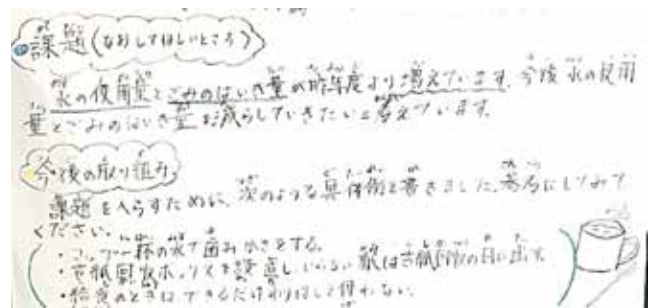 課題(なおしてほしいところ)
水の使用量とごみのはいき量が昨年度より増えています。今後 水の使用
量とごみのはいき量を減らしていきたいと考えています。
今後の取り組み
課題をへらすために、次のような具体例を書きました。参考にしてみて
ください。
・コップ一杯の水で歯みがきをする。
・古紙回収ボックスを設置し、いらない紙は古紙回収の日に出す
・給食のときはできるだけ